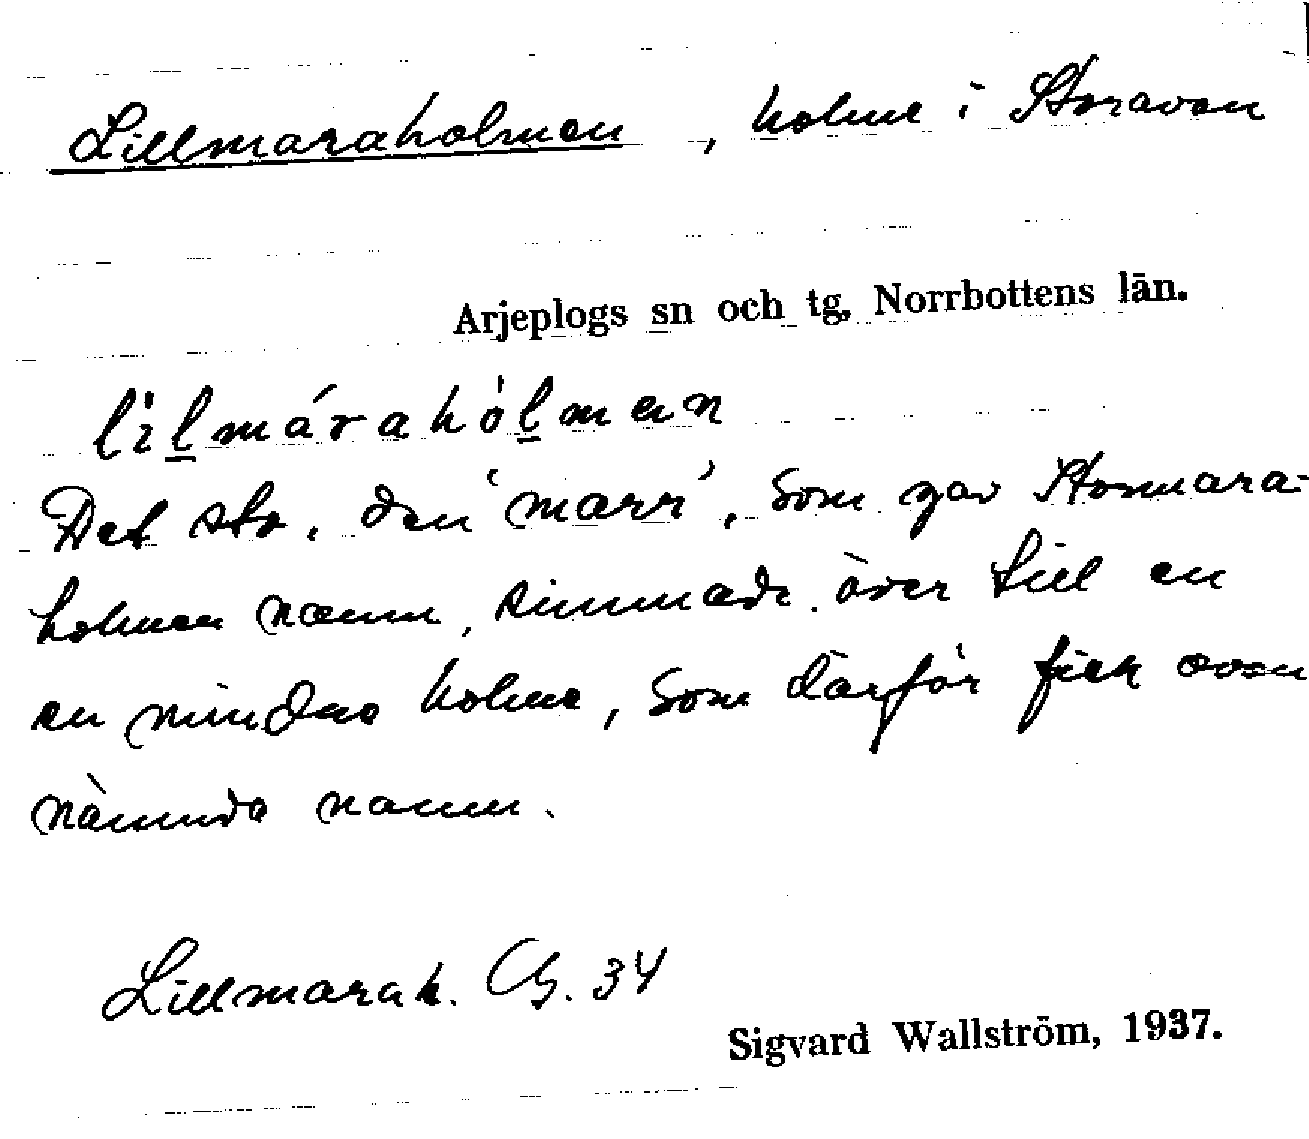 Lillmaraholmen, holme i Storavan
Arjeplogs sn och tg, Norrbottens län.
lilmáraholman
Det sto, den 'marr', som gav Stormara-
holmen namn, simmade över till en
en mindre holme, som därför fick ovan
nämnda namn.
Lillmarah. 34
Sigvard Wallström, 1937.